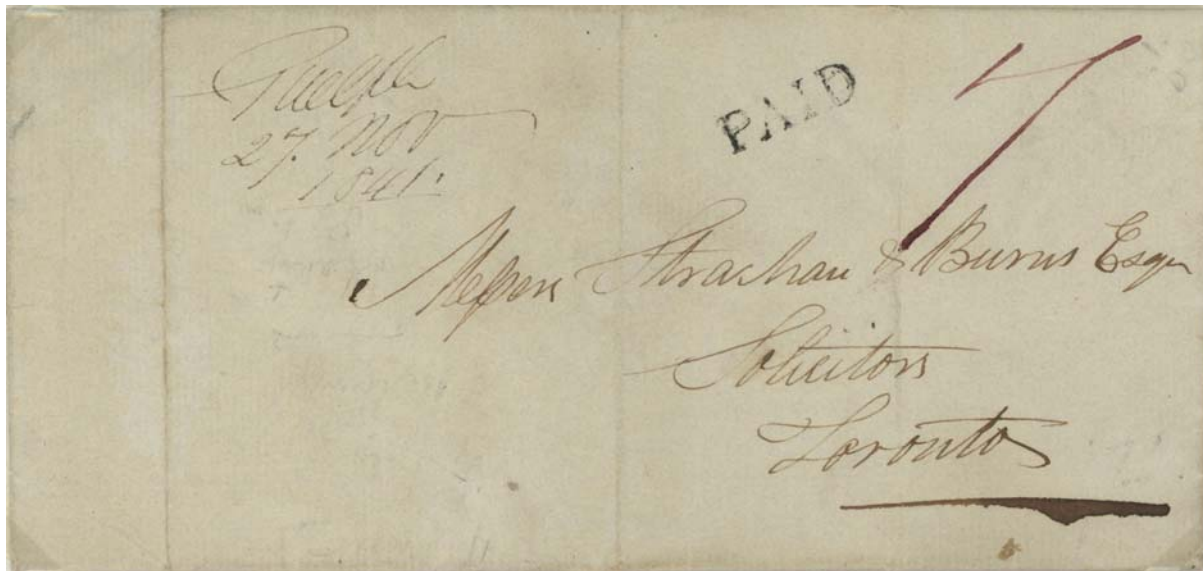 Guelph
27. Nov
1841.
PAID
7
Messrs Strachan & Burns Esqrs
Solicitors
Toronto